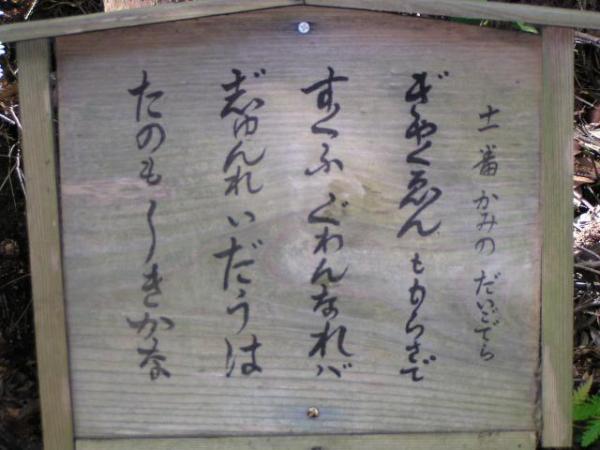 十一番 かみの だいごでら
ぎやくゑんももらさで
すくふ ぐわんなれバ
じゆんれいだうは
たのもしきかな